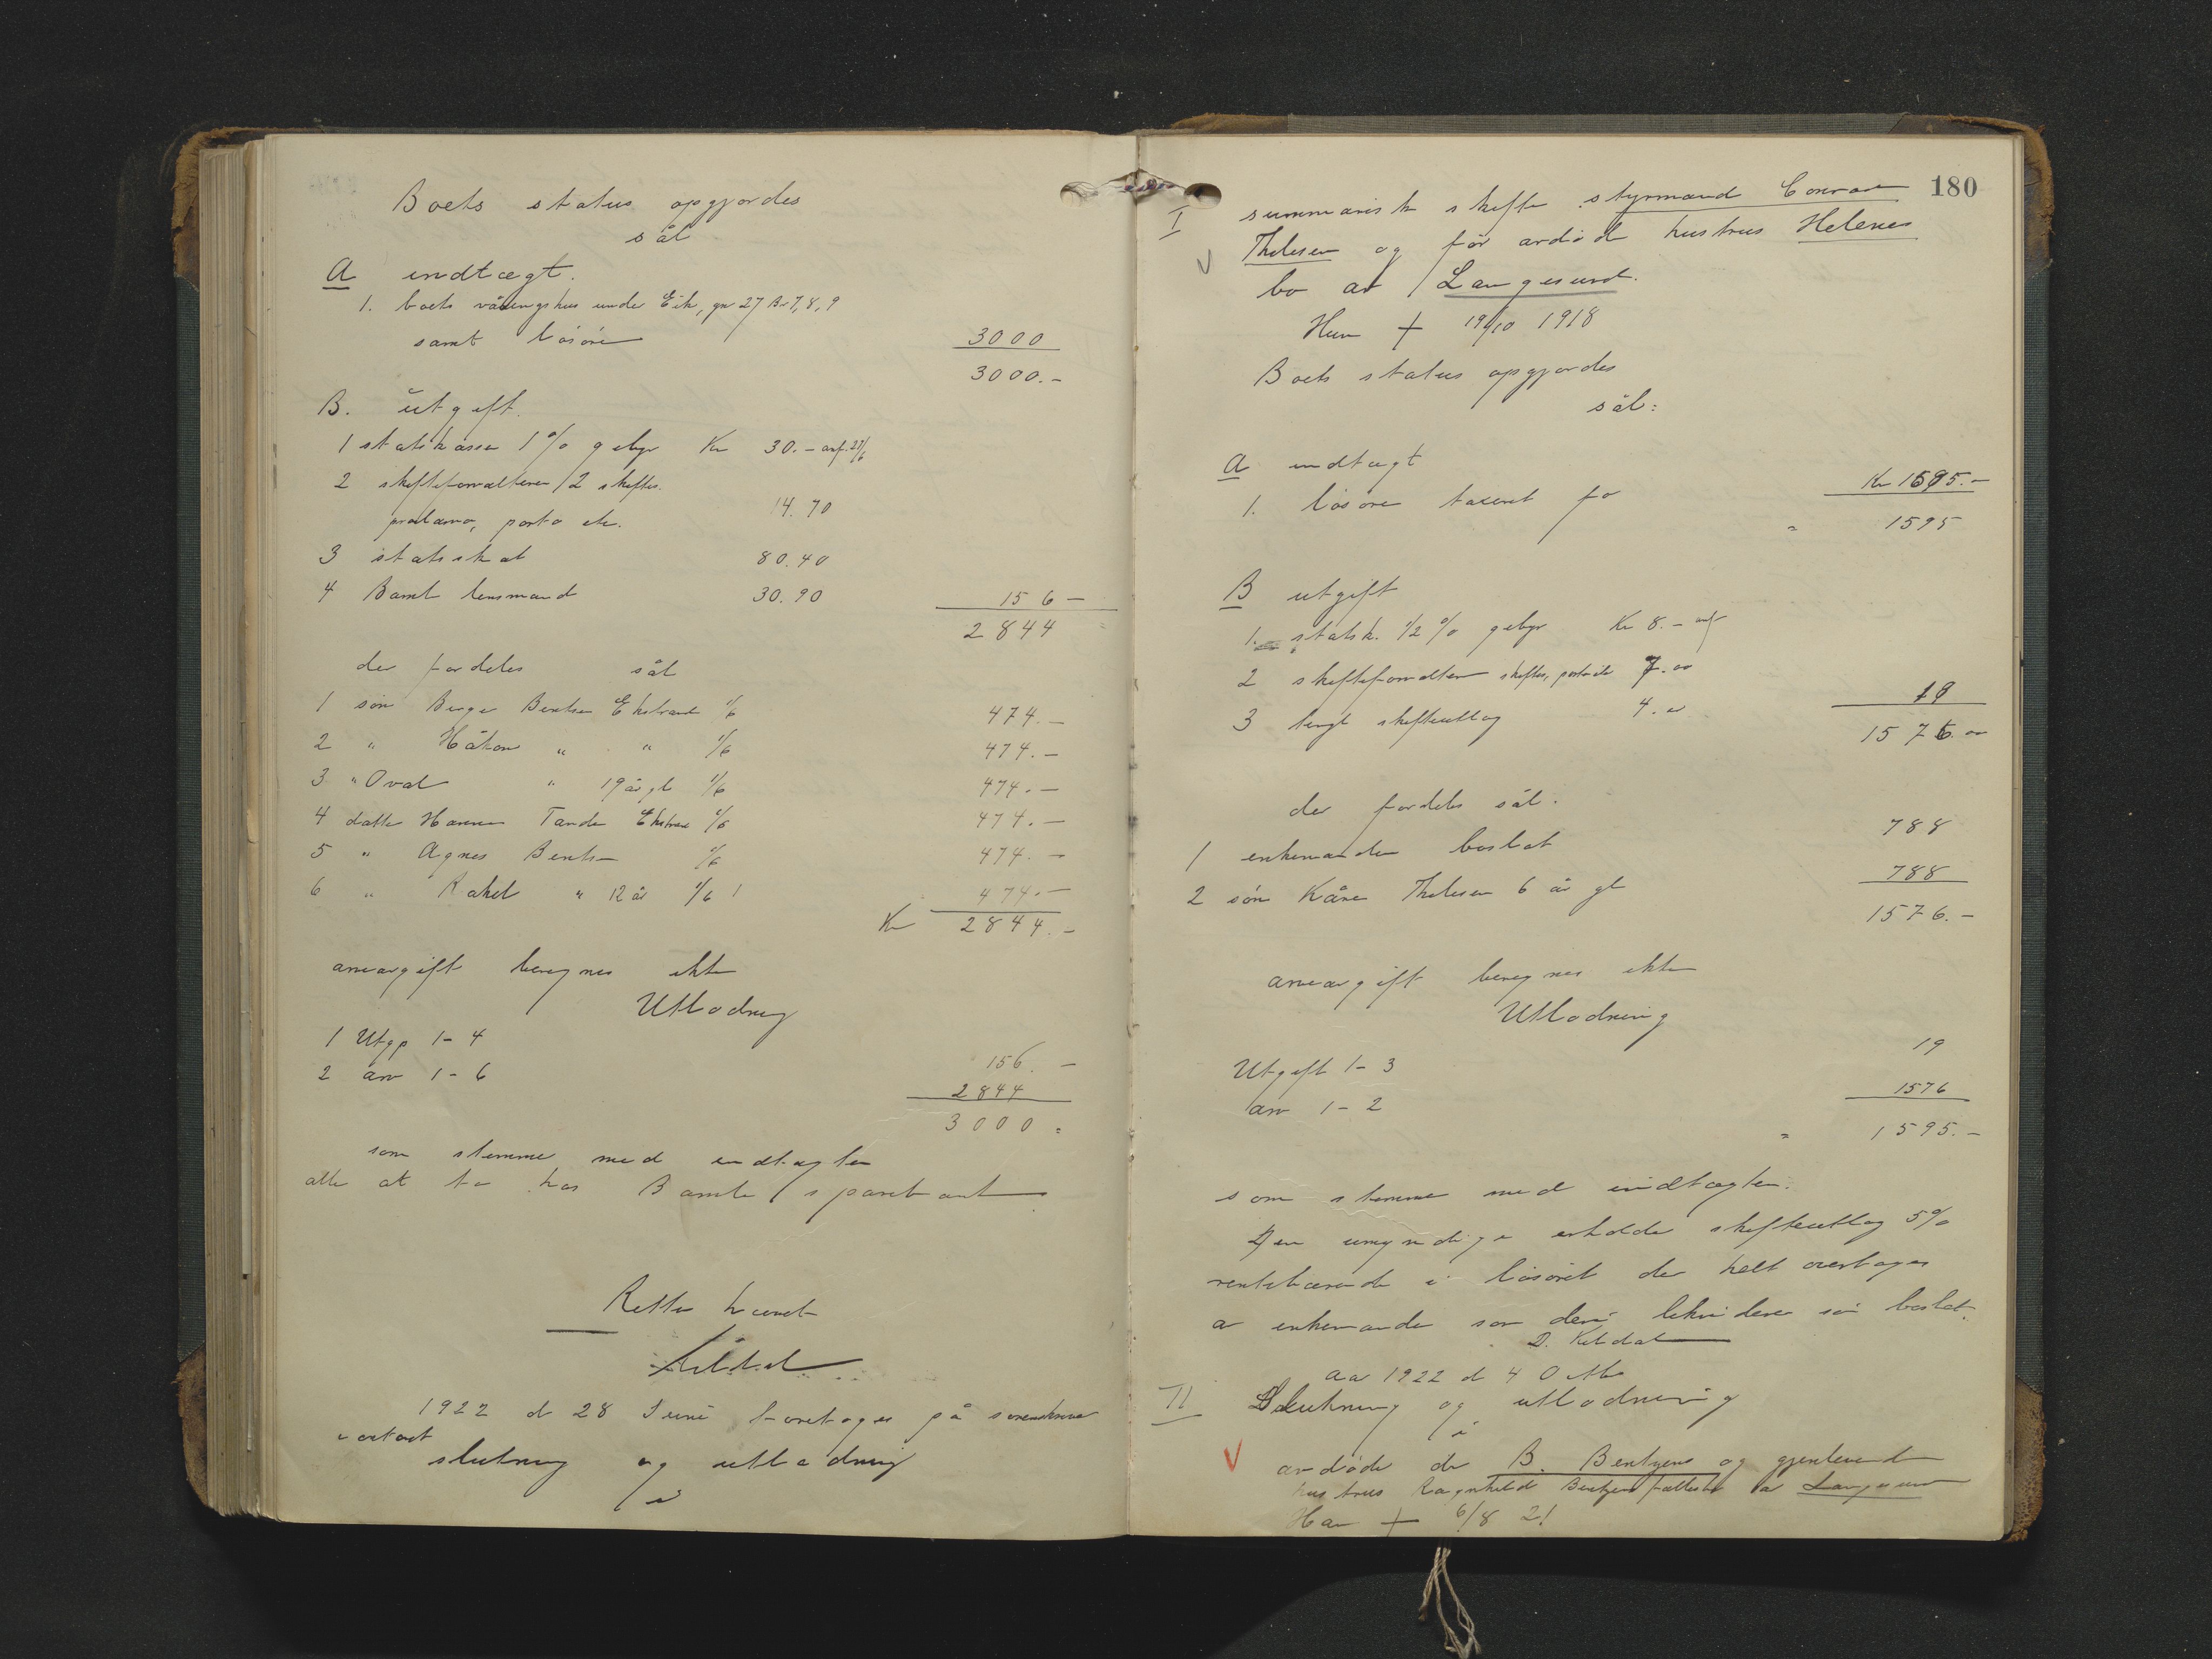 Boets status opgjordes
sål
A indtægt.
1. boets våningshus under Eik, gn 27 Br 7, 8, 9
samt løsøre 3000
3000.-
B. utgift.
1 statskassen 1% gebyr Kr 30.-
2 skifteforvalteren 2 skiftes.
proklama, porto etc. 14.70
3 statsskat 80.40
4 Bamle lensmand 30.90 156-
2844
der fordeles sål
1 søn Birger Bentsen Ekstrand 1/6 474.-
2 " Håkon " " 1/6 474.-
3 " " 19 år gl 1/6 474.-
4 datter Hanna Tande Ekstrand 1/6 474.-
5 " Agnes Bentsen 1/6 474.-
6 " Rakel " 12 år 1/6 474.-
Kr 2844.-
arveavgift beregnes ikke
Utlodning
1 Utgift 1-4 156.-
2 arv 1-6 2844
3000
som stemmer med indtægten
alle at ta hos Bamle sparebank
Retten hævet
Keldal
1922 d 28 Juni foretoges på sorenskriver
kontoret
slutning og utlodning
i
180
I summarisk skifte styrmand Conrad
Thelesen og før avdøde hustrus Helenes
bo av Langesund.
Hun + 19/10 1918
Boets status opgjordes
sål:
A indtægt
1. løsøre taxeret for Kr 1595.-
" 1595
B utgift
1. statsk. 1/2 % gebyr Kr 8.-
2 skifteforvalteren skiftes, porto etc 7.00
3 tingl skifteutlæg 4.00 19
1576.00
der fordeles sål.
1 enkemanden boslod 788
2 søn Kåre Thelesen 6 år gl 788
1576.-
arveavgift beregnes ikke
Utlodning
Utgift 1-3 19
arv 1-2 1576
" 1595.-
som stemmer med indtægten.
Den umyndige erholder skifteutlæg 5%
rentebærende i løsøret der helt overtages
av enkemanden som deri likviderer sin boslod.
D. Keldal
Aar 1922 d 4 Oktbr
II Slutning og utlodning
i
avdøde B. Bentzens og gjenlevende
hustrus Ragnhild Bentzens fællesbo av Langesund
Han + 6/8 21